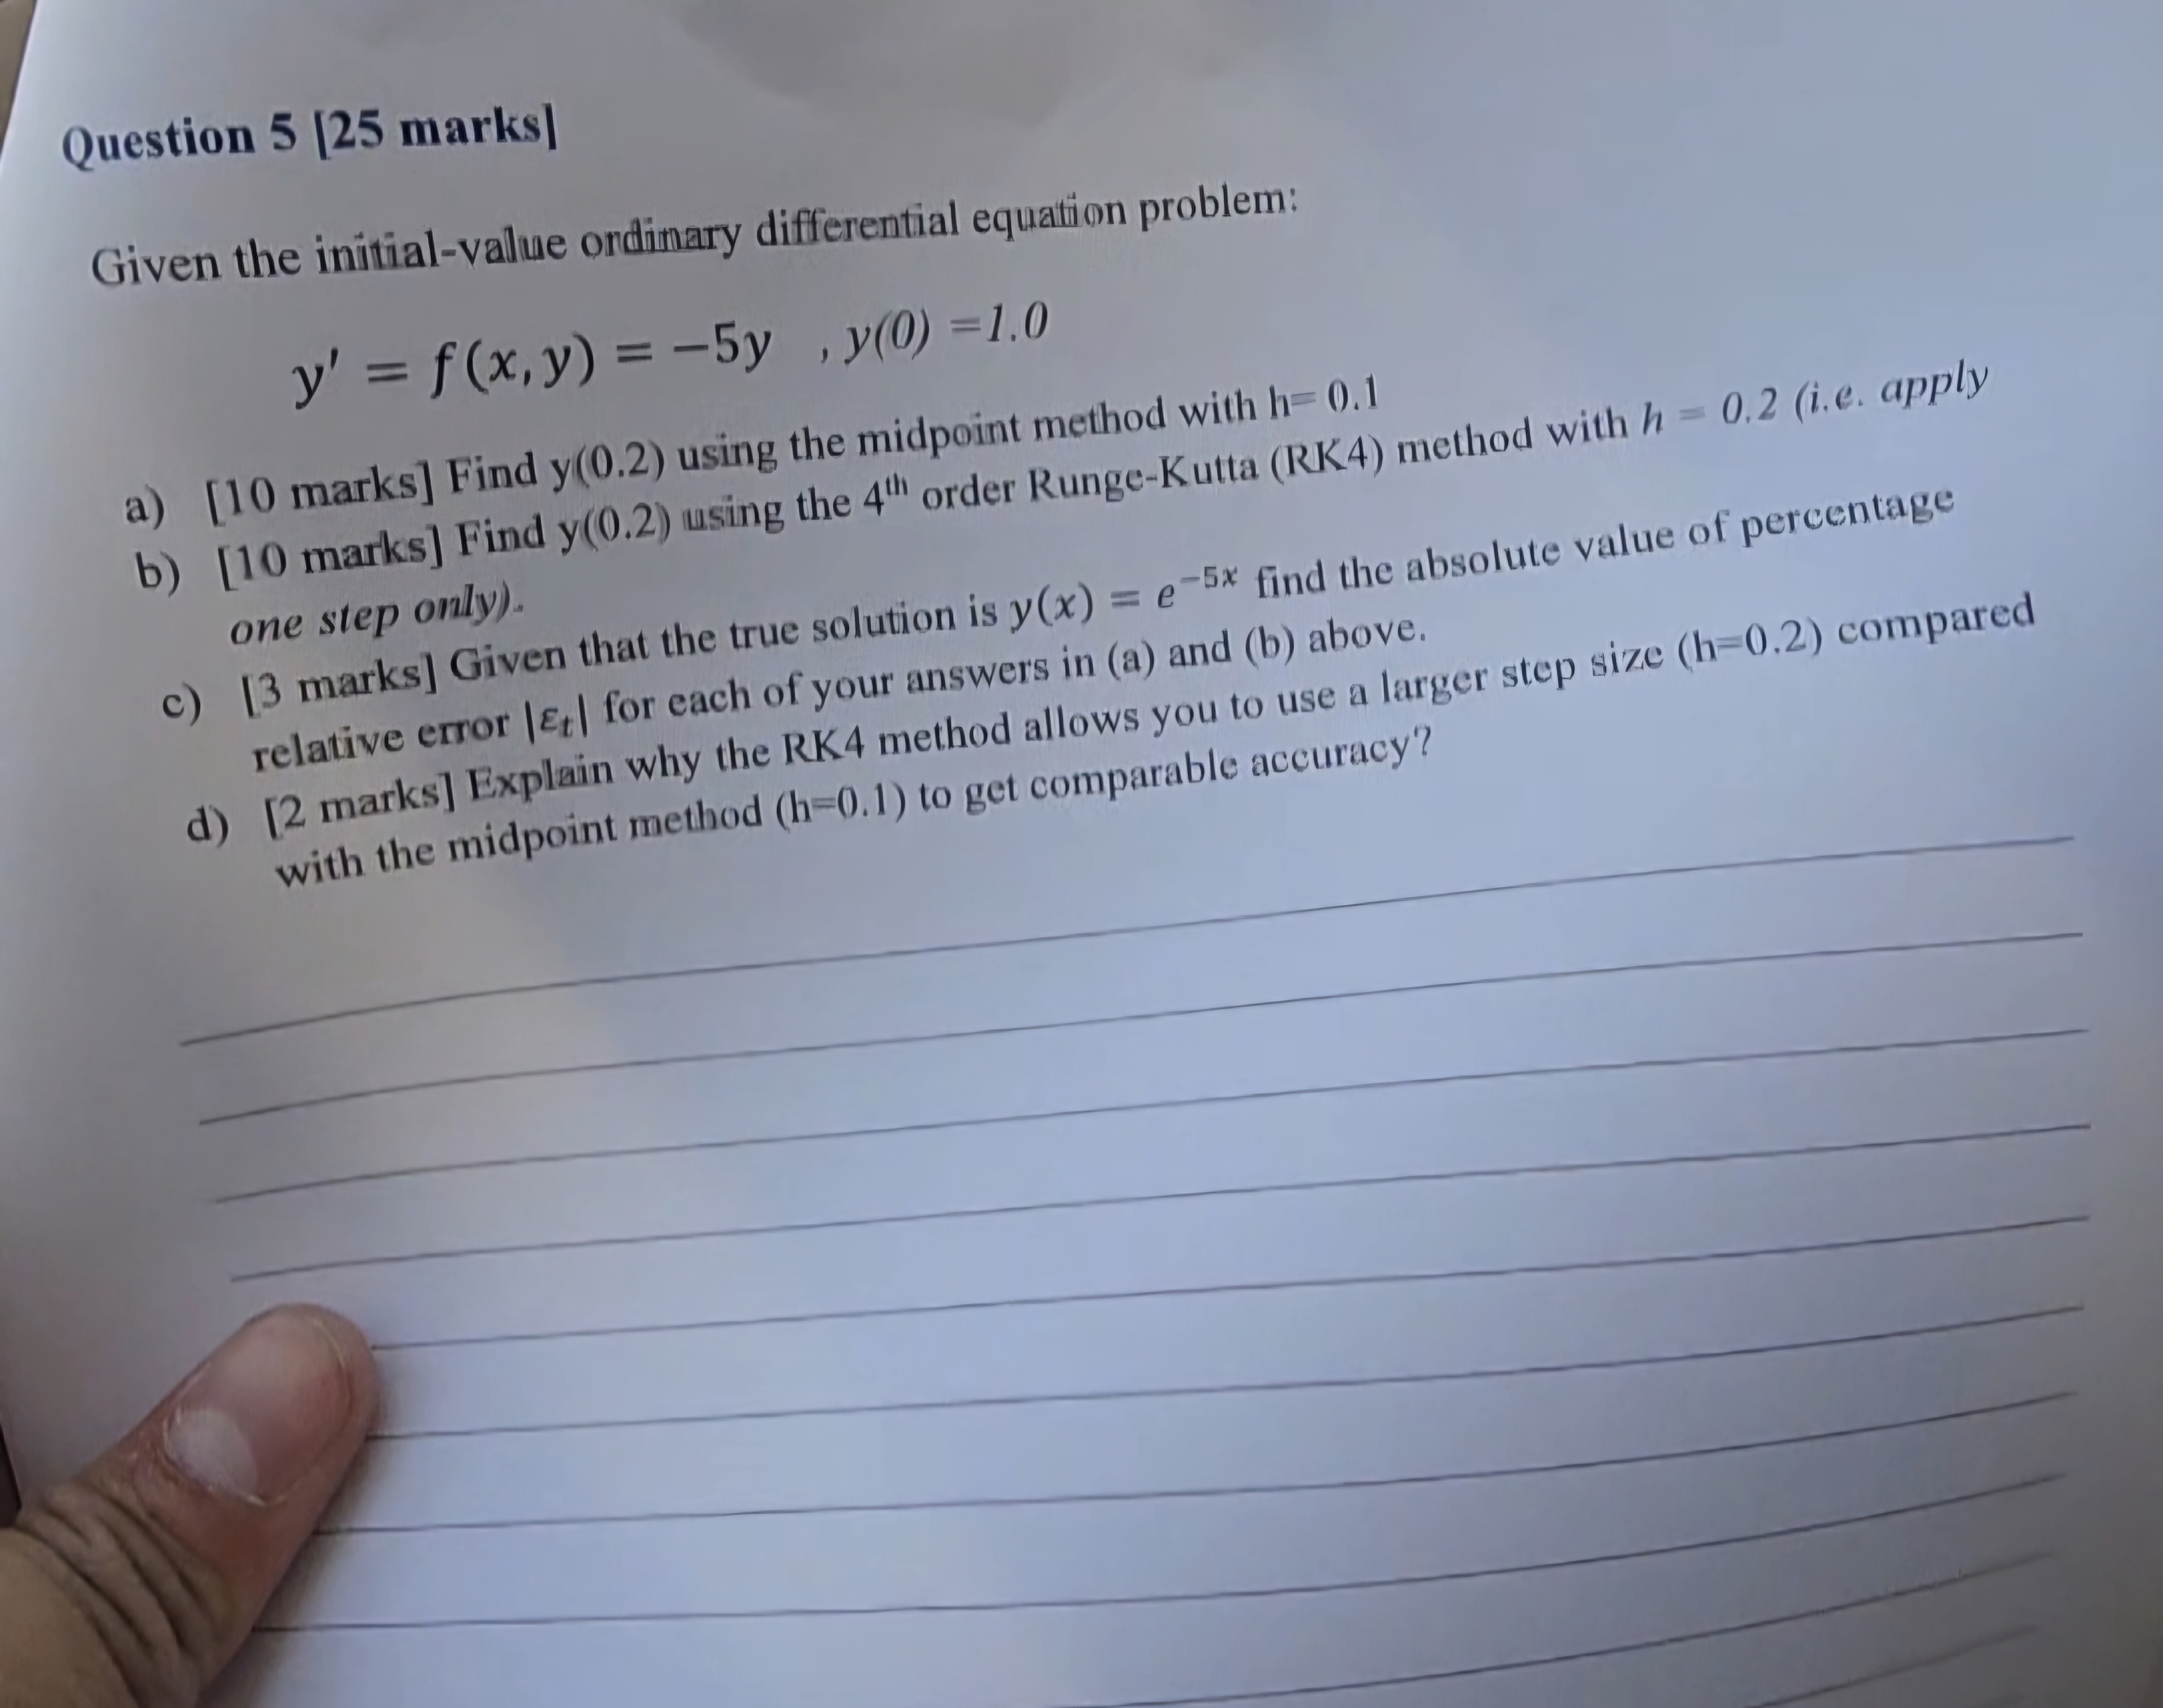 Question 5 [25 marks]
Given the initial-value ordinary differential equation problem:
y' = f(x, y) = −5y , y(0) =1.0
a) [10 marks] Find y(0.2) using the midpoint method with h= 0.1
b) [10 marks] Find y(0.2) using the 4th order Runge-Kutta (RK4) method with h = 0.2 (i.e. apply
one step only).
c) [3 marks] Given that the true solution is y(x) = e^−5x find the absolute value of percentage
relative error |εt| for each of your answers in (a) and (b) above.
d) [2 marks] Explain why the RK4 method allows you to use a larger step size (h=0.2) compared
with the midpoint method (h=0.1) to get comparable accuracy?